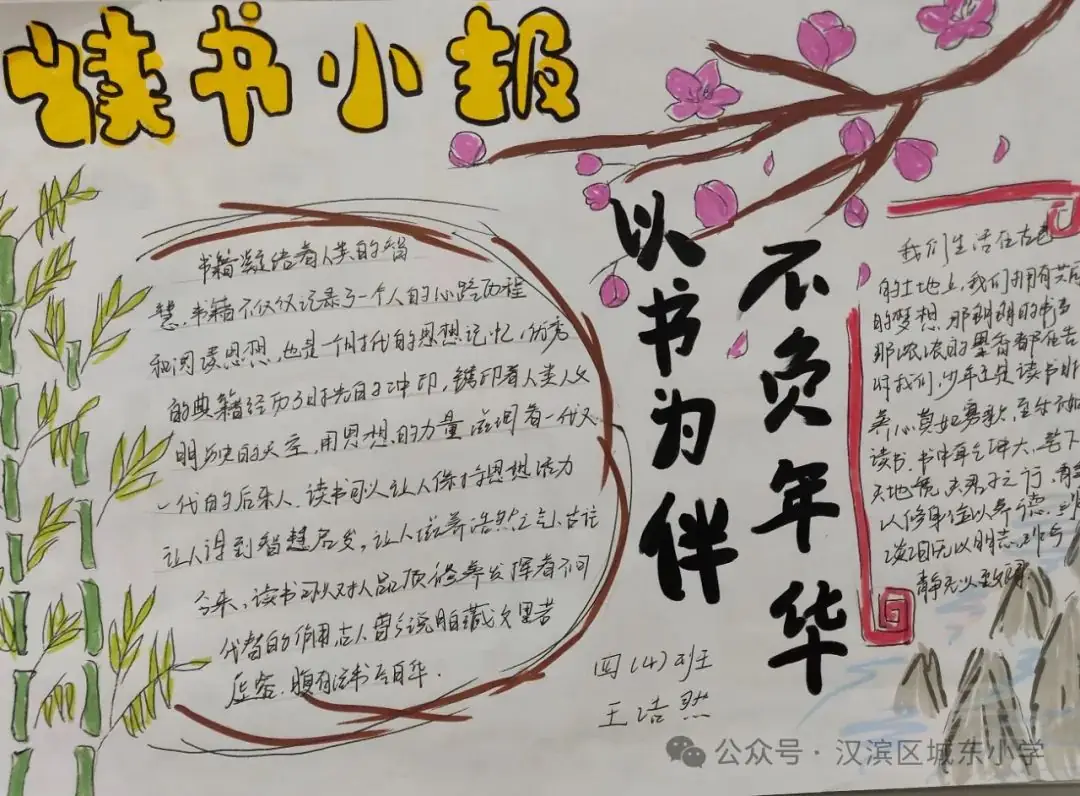 读书小报
书籍凝结着人类的智
慧,书籍不仅仅记录了一个人的心路历程
和阅读思想,也是一个时代的思想记忆,优秀
的典籍经历了时光的冲印,镌印着人类人文
明历史的天空,用思想的力量滋润着一代又
一代的后来人,读书可以让人保持思想活力
让人得到智慧启发,让人滋养浩然之气,古往
今来,读书可以对人品质修养发挥着不可
代替的作用古人曾经说胸藏文墨
虚若谷,腹有诗书气自华.
以书为伴
不负年华
我们生活在古老
的土地上,我们拥有共同
的梦想,那朗朗的书声
那浓浓的墨香都在告
诉我们,少年正是读书时
养心莫如寡欲,至乐无如
读书,书中乾坤大,笔下
天地宽,夫君子之行,静
以修身,俭以养德,非
淡泊无以明志,非宁
静无以致远
四(4)班
王浩然
公众号·汉滨区城东小学